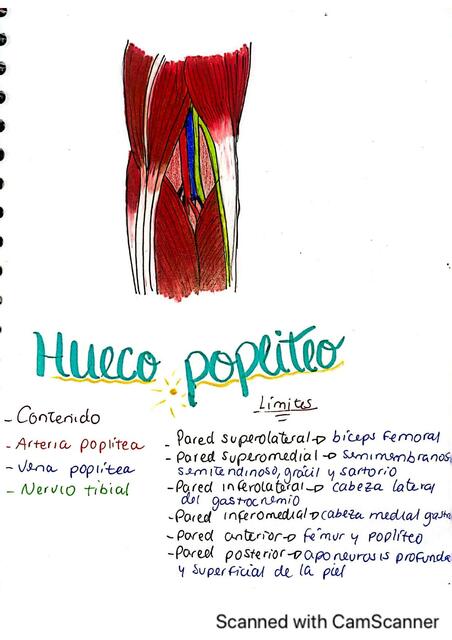 Hueco popliteo
- Contenido
- Arteria poplítea
- Vena poplítea
- Nervio tibial
Límites
- Pared superolateral → bíceps femoral
- Pared superomedial → semimembranos
semitendinoso, grácil y sartorio
- Pared inferolateral → cabeza lateral
del gastrocnemio
- Pared inferomedial → cabeza medial gast
- Pared anterior → fémur y poplíteo
- Pared posterior → aponeurosis profunda
y superficial de la piel
Scanned with CamScanner